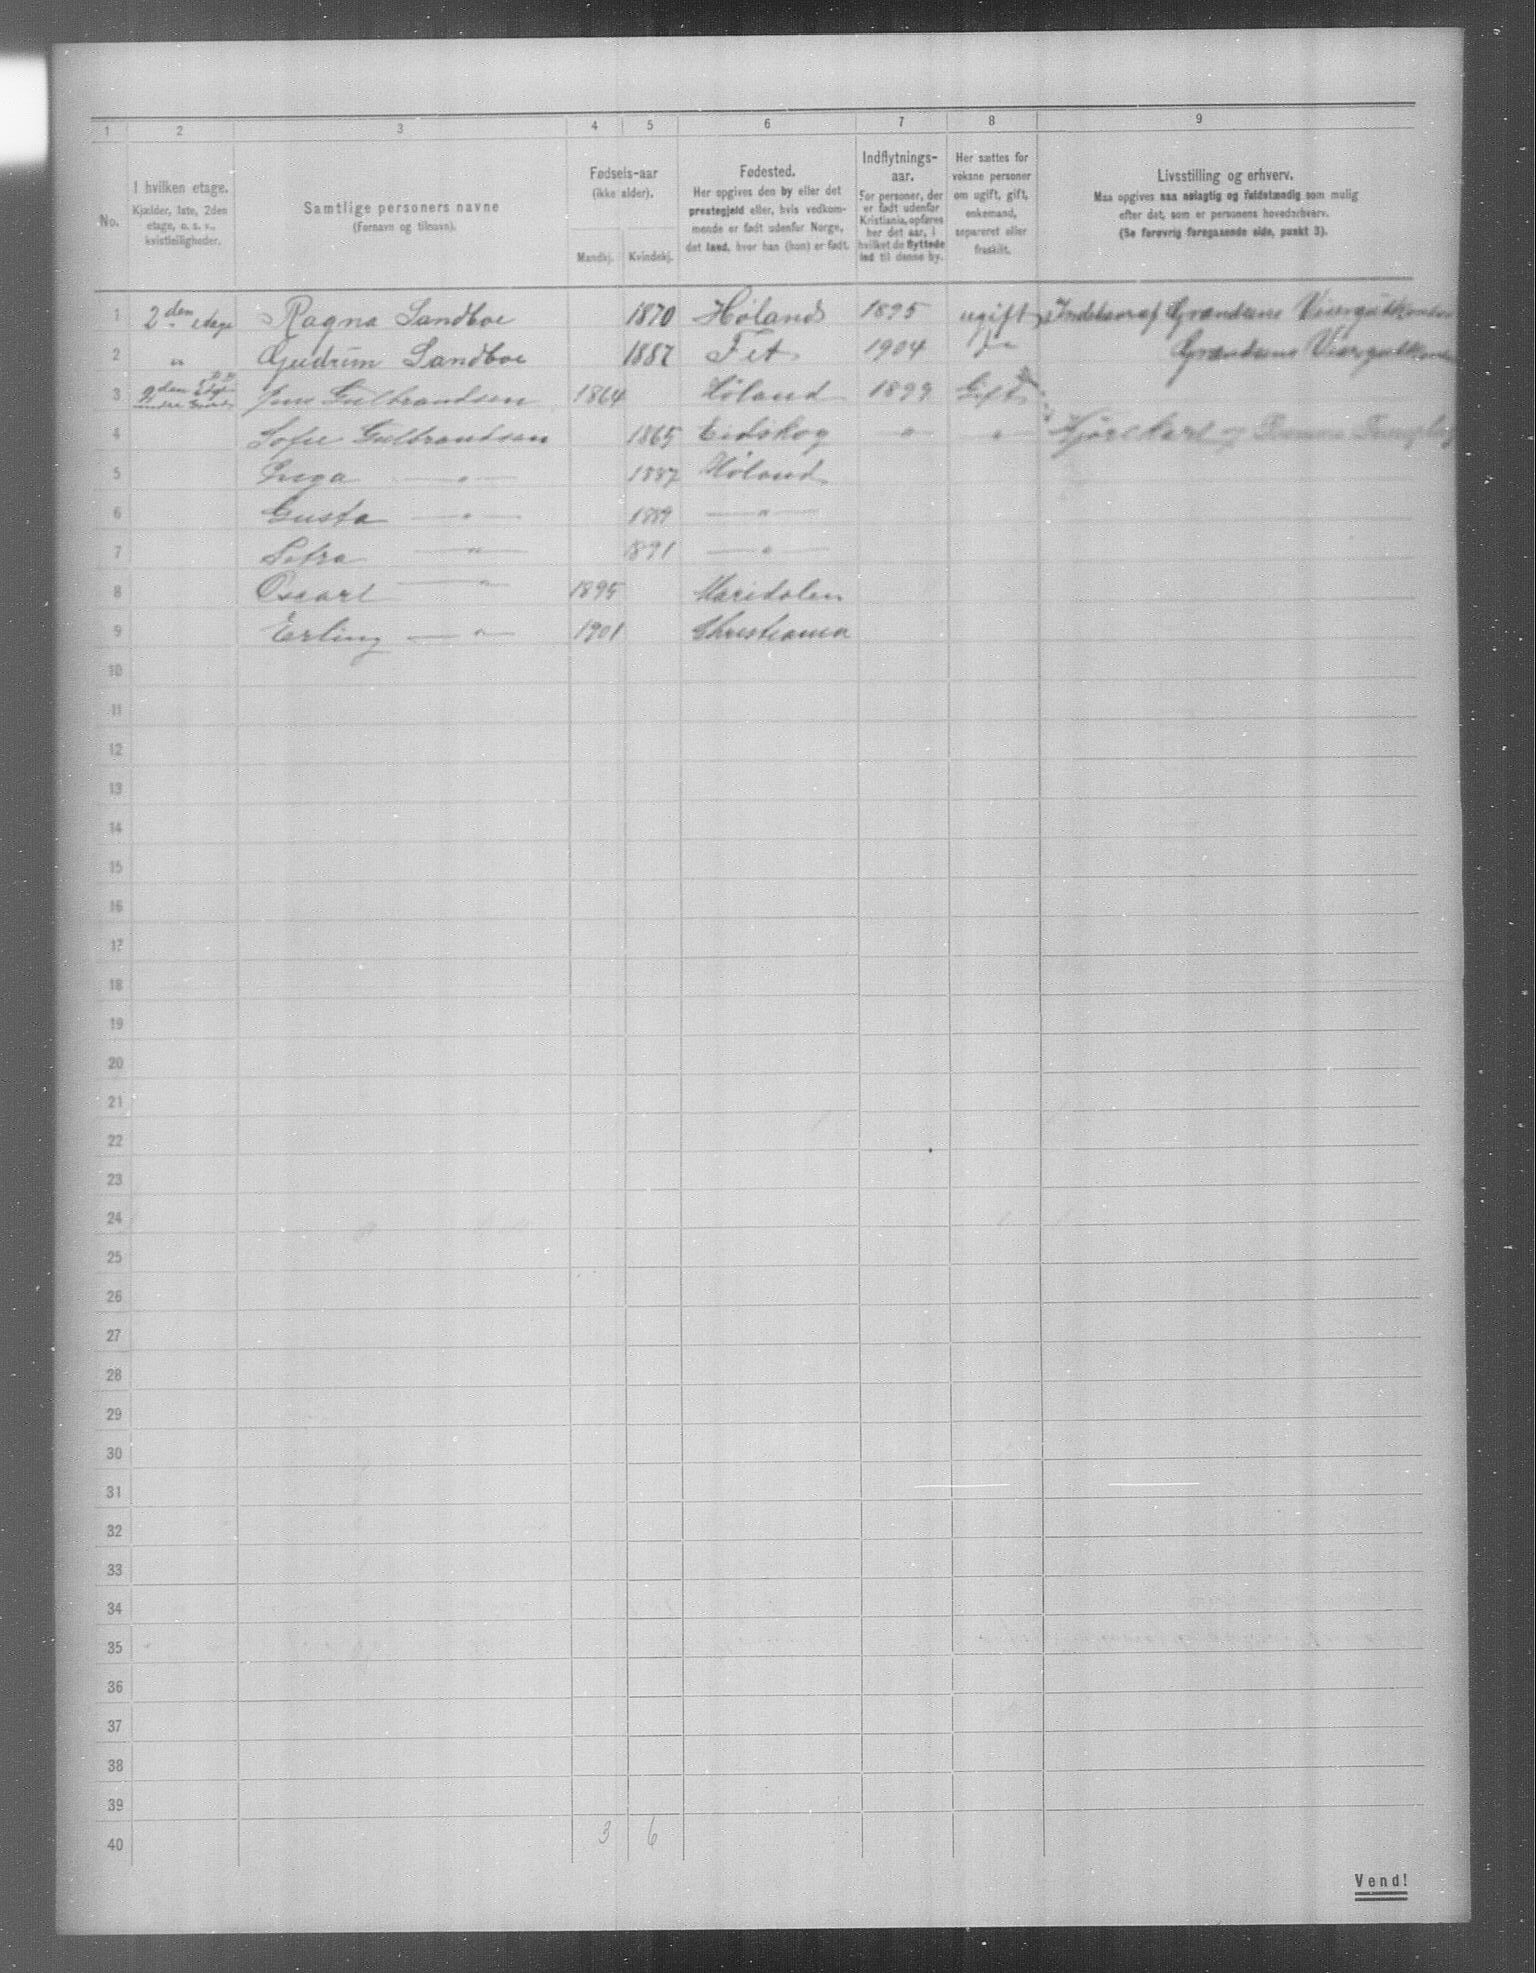 1 2 3 4 5 6 7 8 9
No.
I hvilken etage.
Kjælder, 1ste, 2den
etage, o. s. v.,
kvistleiligheder.
Samtlige personers navne
(Fornavn og tilnavn).
Fødsels-aar
(ikke alder).
Mandkj. Kvindekj.
Fødested.
Her opgives den by eller det
prestegjeld eller, hvis vedkom-
mende er født udenfor Norge,
det land, hvor han (hun) er født.
Indflytnings-
aar.
For personer, der
er født udenfor
Kristiania, opføres
her det aar, i
hvilket de flyttede
ind til denne by.
Her sættes for
voksne personer
om ugift, gift,
enkemand,
separeret eller
fraskilt.
Livsstilling og erhverv.
Maa opgives saa nøiagtig og fuldstændig som mulig
efter det, som er personens hovederhverv.
(Se forøvrig foregaaende side, punkt 3).
1 2den etage Ragna Sandboe 1870 Høland 1895 ugift
2 " Gudrun Sandboe 1887 Fet 1904
3 2den Gulbrandsen 1864 Høland 1899 Gift
4 Sofie Gulbrandsen 1865 Eidskog " " Kjørekarl
5 Inga " 1887 Høland
6 Gusta " 1889 "
7 " 1891 "
8 Oscarl " 1895 Maridalen
9 Erling " 1901 Christiania
10
11
12
13
14
15
16
17
18
19
20
21
22
23
24
25
26
27
28
29
30
31
32
33
34
35
36
37
38
39
40 3 6
Vend!